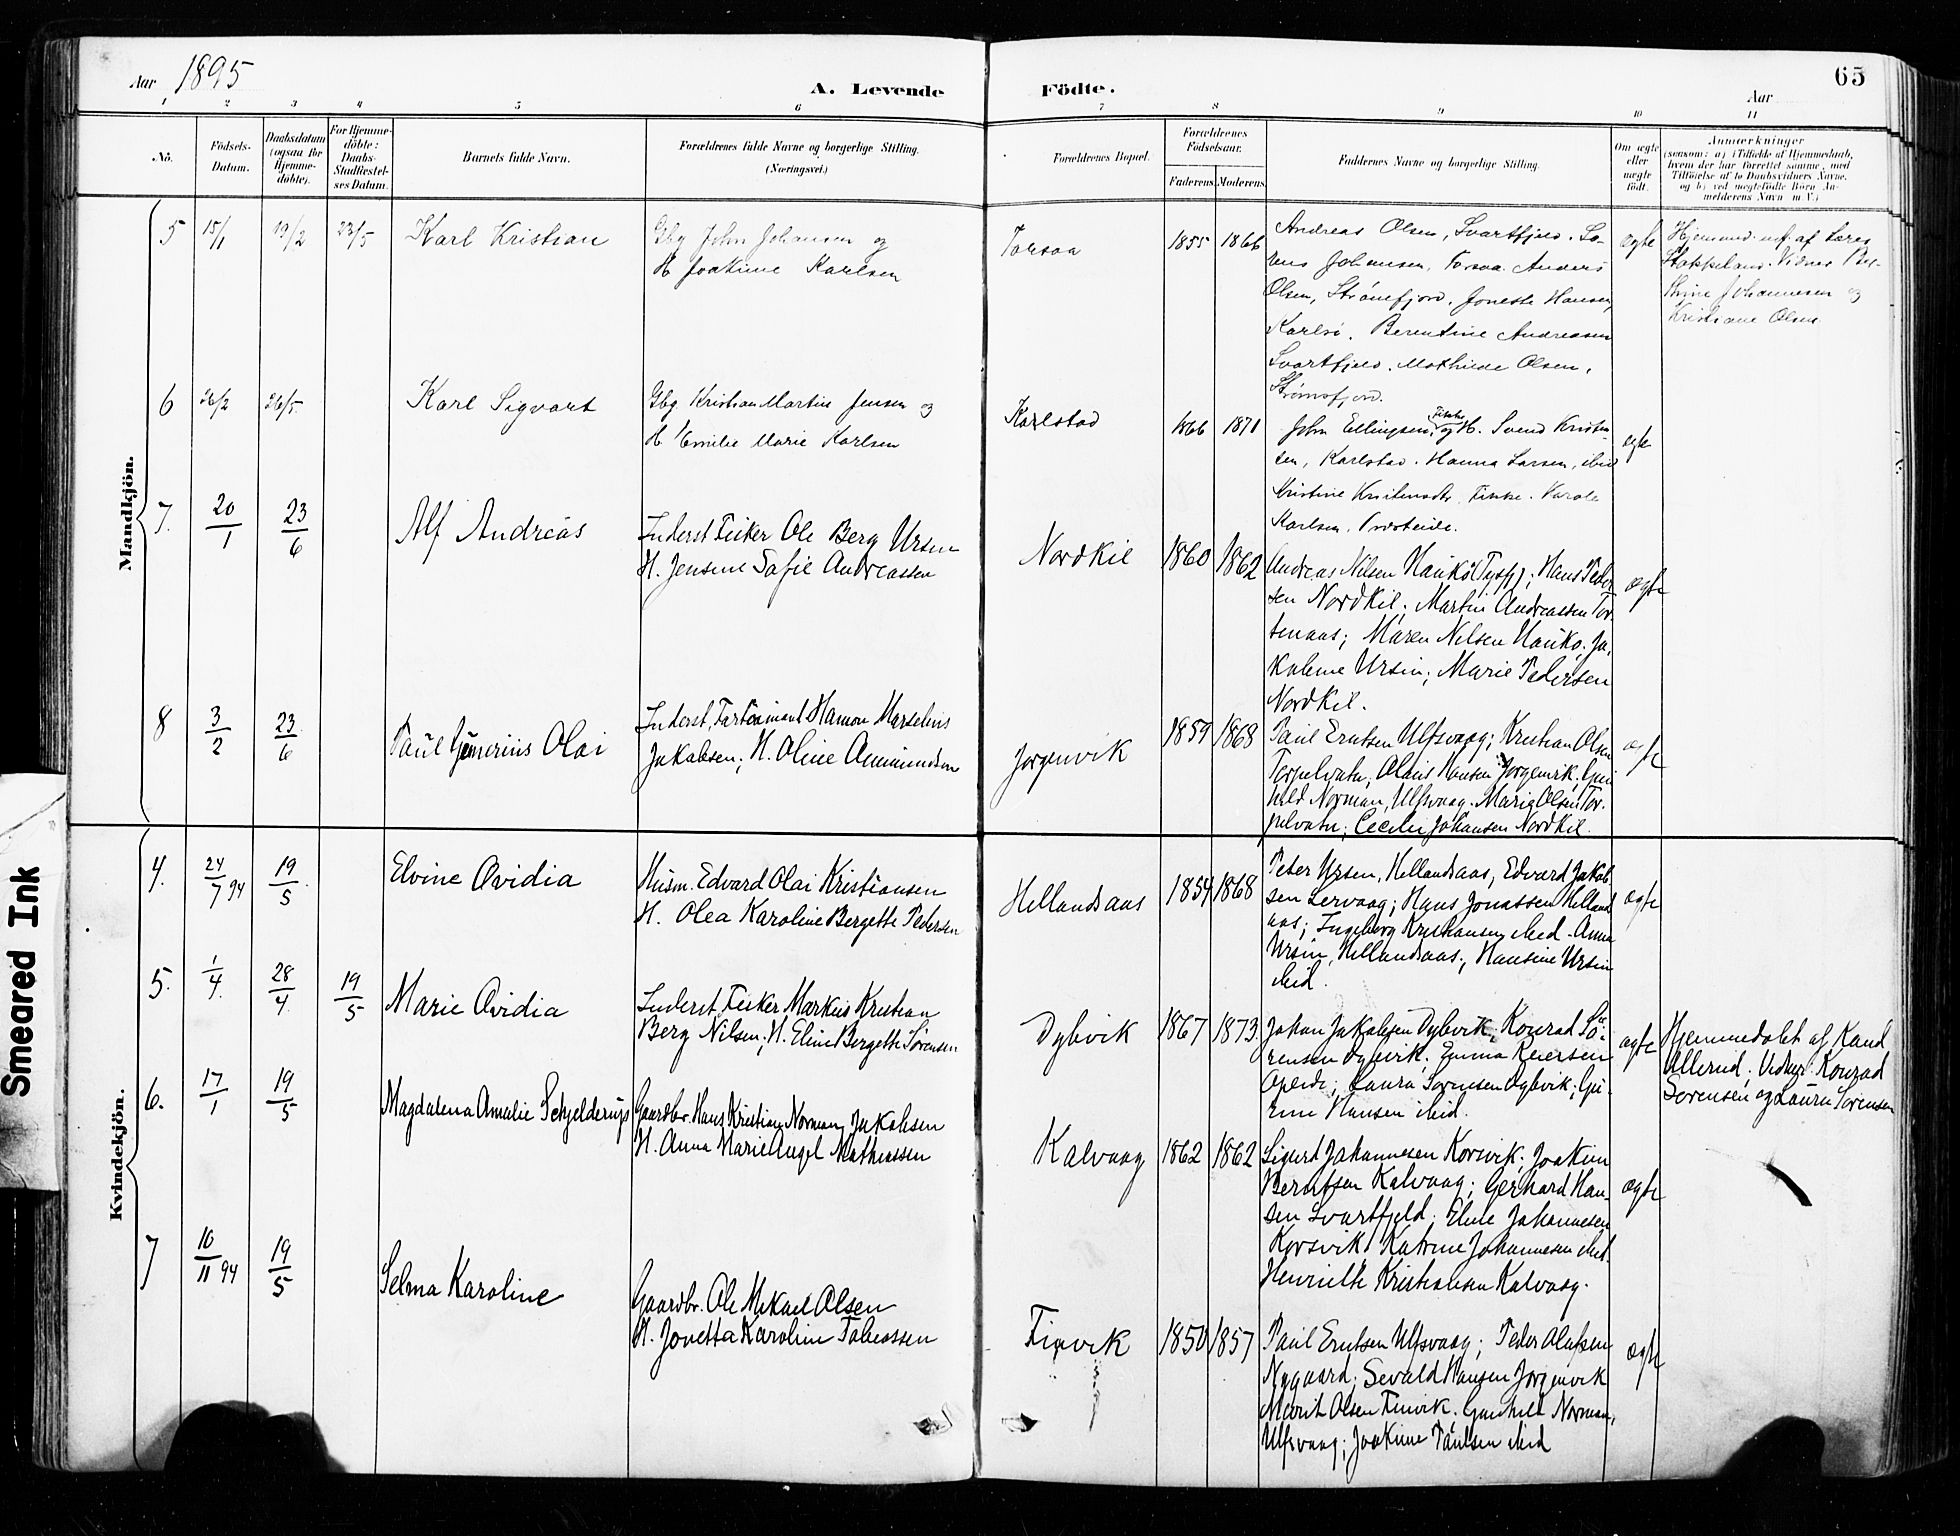 Aar 1895
A. Levende Födte.
65
Aar
1 2 3 4 5 6 7 8 9 10 11
No.
Födsels-Datum.
Daabsdatum (ogsaa for Hjemme-döbte).
For Hjemme-döbte: Daabs-Stadfæstel-ses Datum.
Barnets fulde Navn.
Forældrenes fulde Navne og borgerlige Stilling. (Næringsvei.)
Forældrenes Bopæl.
Forældrenes Födselsaar.
Faderens Moderens
Faddernes Navne og borgerlige Stilling.
Om ægte eller uægte födt.
Anmærkninger
(saasom: a) i Tilfælde af Hjemmedaab,
hvem der har forrettet samme, med
Tilföielse af to Daabsvidners Navne,
og b) ved uægtefödte Börn An-
melderens Navn m. V.)
Mandkjön.
5 15/1 19/2 23/5 Karl Kristian
Gbg John Johansen og
H Joakime Karlsen
Torsaa 1855 1866
Andreas Olsen, Svartfjeld.
Johansen, Torsaa. Anders
Olsen, Strömefjord. Hansen,
Karlsö. Berentine Andreasen
Svartfjeld. Mathilde Olsen,
Strömsfjord.
ægte
Hjemmed. af Lærer
Stokkeland. Vidner
Johannesen og
Kristiane Olsen
6 26/2 26/5 Karl Sigvart
Gbg. Kristian Martin Jensen og
H Emilie Marie Karlsen
Karlstad 1866 1871
John Ellingsen, Finke og H. Svend Kristen-
sen, Karlstad. Hanna Larsen, ibid
Kristine Finke.
Karlsen,
ægte
7. 20/1 23/6 Alf Andreas
Inderst Fisker Ole Berg Ursin
H. Jensine Sofie Andreassen
Nordkil 1860 1862
Andreas Nilsen Haukö (Tysfj); Hans Peder-
sen Nordkil; Martin Andreassen Tor-
stenaas; Maren Nilsen Haukö; Ja-
kobine Ursin; Marie Pedersen
Nordkil.
ægte
8 3/2 23/6 Paul Olai
Inderst, Hamon Marselius
Jakobsen; H. Oline Ammundsen
Jorgenvik 1859 1868
Paul Erntsen Ulfsvaag; Kristian Olsen
Torpelvatn; Olaus Hansen Jorgenvik; Gun-
hild Norman, Ulfsvaag. Marie Olsen Tor-
pelvatn; Cecilie Johansen Nordkil.
ægte
Kvindekjön.
4. 24/7 94 19/5 Elvine Ovidia
Husm. Edvard Olai Kristiansen
H. Olea Karoline Bergette Pedersen
Hellandsaas 1854 1868
Peter Ursin, Hellandsaas, Edvard Jakob-
sen Lervaag; Hans Jonassen Helland-
aas; Ingeborg Kristiansen ibid. Anna
Ursin, Hellandsaas; Hansine Ursin
ibid.
ægte
5. 1/4 28/4 19/5 Marie Ovidia
Inderst, Fisker Markus Kristian
Berg Nilsen; H. Eline Bergette Sörensen
Dybvik 1867 1873
Johan Jakobsen Dybvik; Konrad Sö-
rensen Dybvik; Emma Reiersen
Laura Sorensen Dybvik; Gu-
Hansen ibid.
ægte
Hjemmedobt af Kand
Ullerud; Vidner Konrad
Sorensen og Laura Sorensen
6. 17/1 19/5 Magdalena Amalie Schjelderup
Gaardbr. Hans Kristian Norman Jakobsen
H. Anna Marie Angel Mathiassen
Kalvaag 1862 1862
Sigurd Johannesen Korsvik; Joakim
Berntsen Kalvaag; Gerhard Han-
sen Svartfjeld; Eline Johannesen
Korsvik; Katrine Johannesen ibid.
Henriette Kristiansen Kalvaag.
ægte
7 10/11 94 19/5 Selma Karoline
Gaardbr. Ole Mikael Olsen
H. Jonetta Karoline Tobiassen
Finvik 1850 1857
Paul Erntsen Ulfsvaag; Peder Olufsen
Nygaard; Sevald Hansen Jorgenvik
Marit Olsen Finvik; Gunhild Norman,
Ulfsvaag; Joakime Paulsen ibid
ægte
Smeared Ink